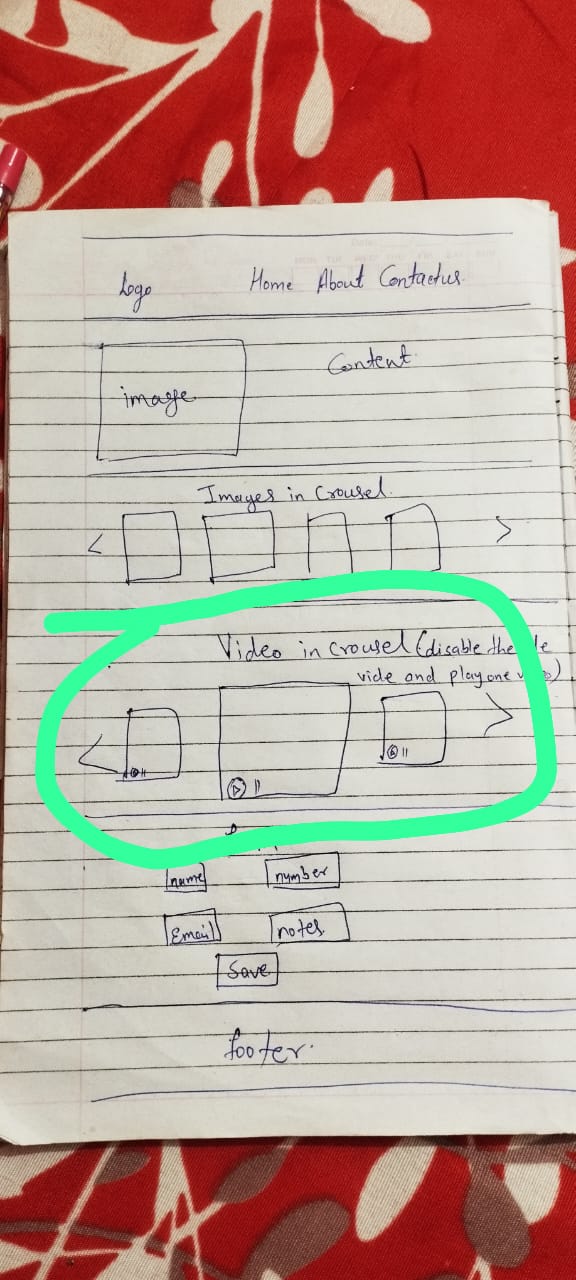 Logo Home About Contactus.
image
Content
Images in Crousel.
< >
Video in Crousel (disable the
vide and play one
< >
name number
Email notes
Save
footer.